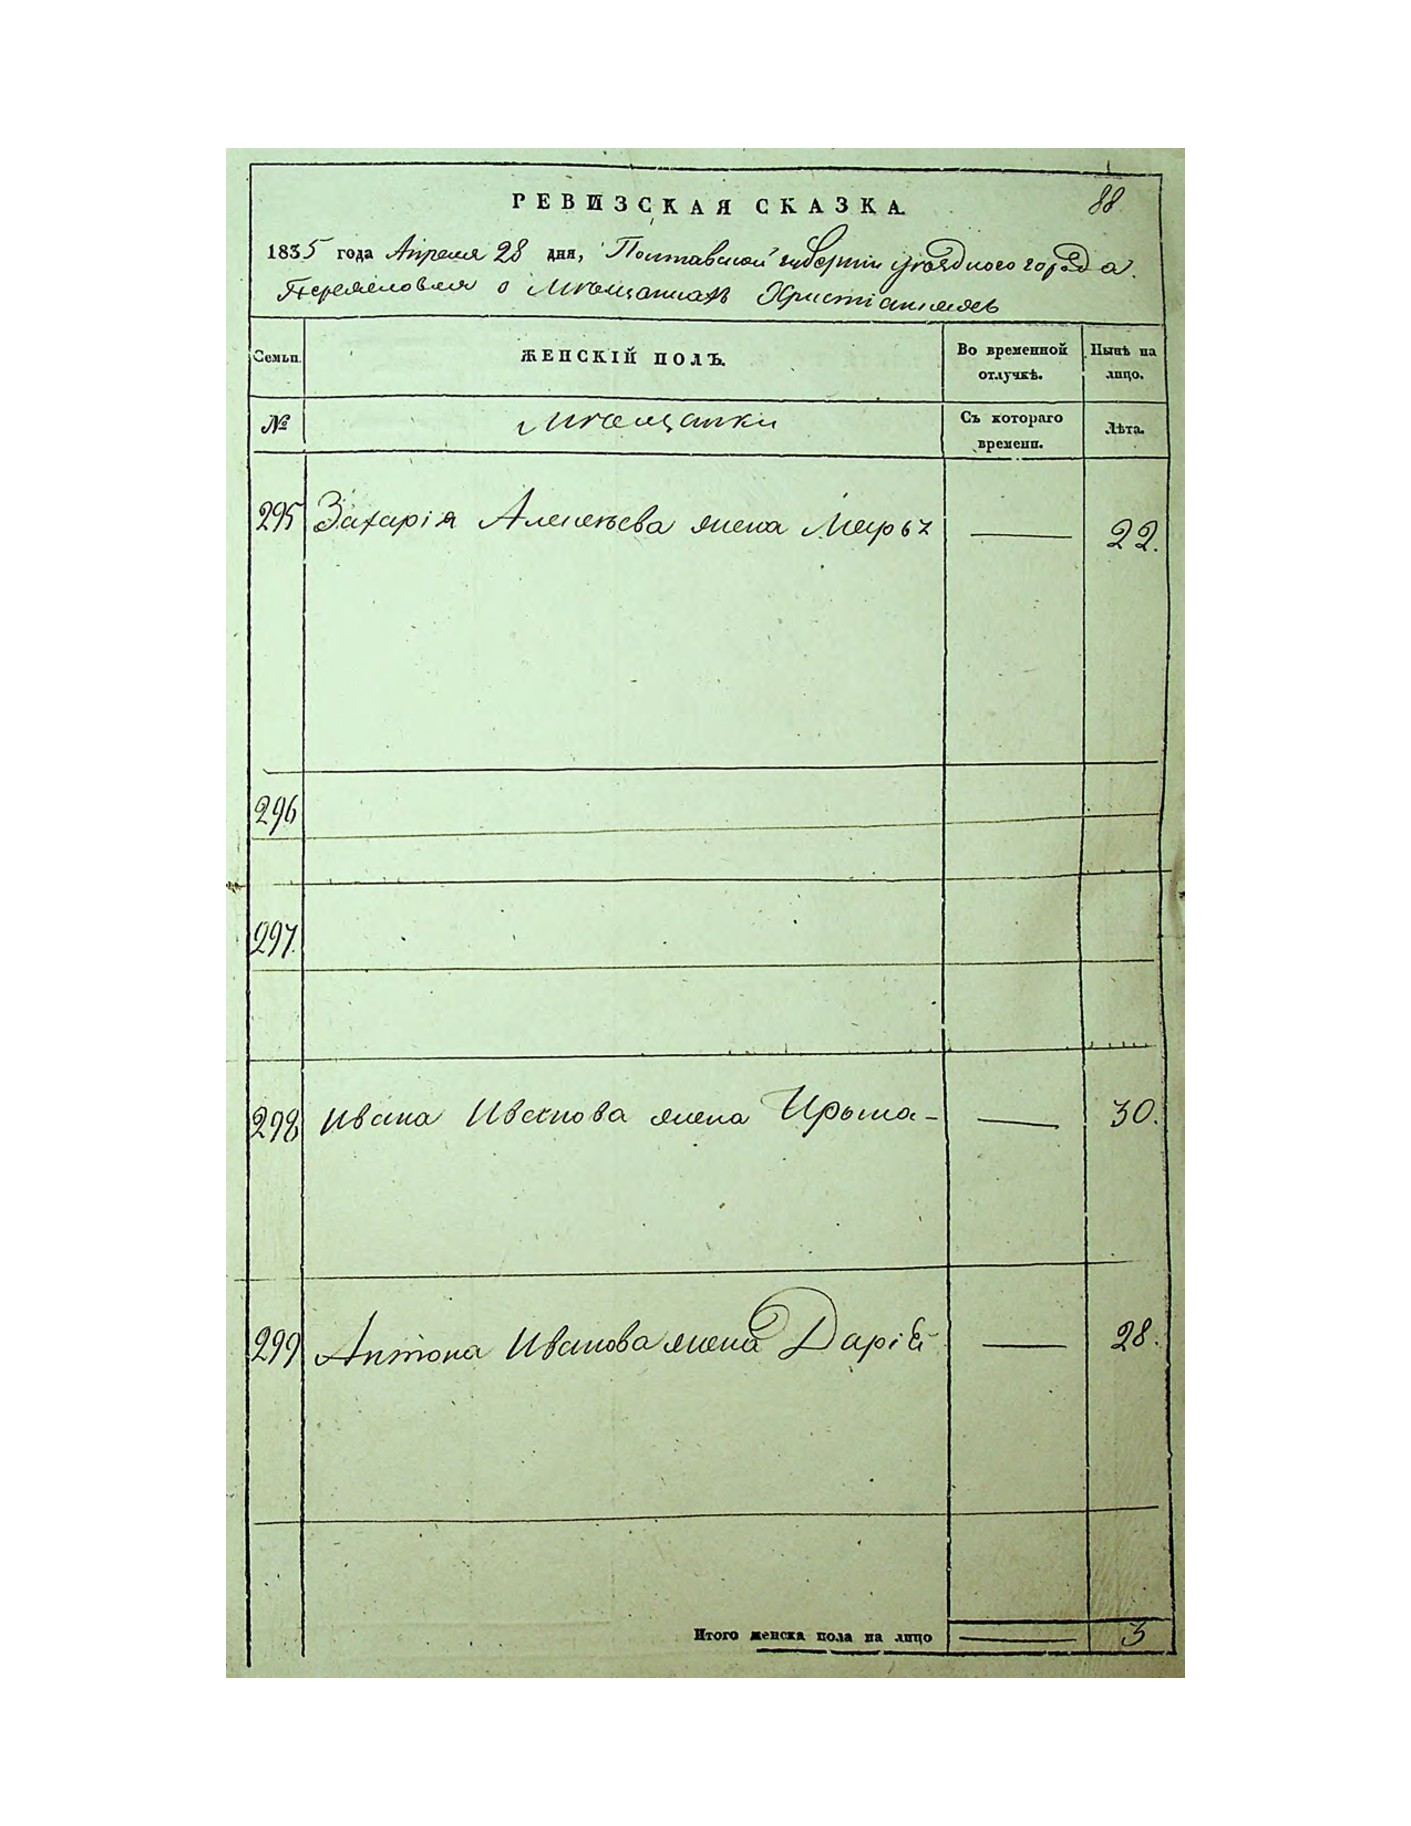 88
РЕВИЗСКАЯ СКАЗКА.
1835 года Апреля 28 дня, Полтавской губернии уѣзднаго города
Переяслова о мѣщанахъ Христіанахъ
Семьи. ЖЕНСКІЙ ПОЛЪ. Во временной отлучкѣ. Нынѣ на лицо.
№ Мѣщанки Съ котораго времени. Лѣта.
295 Захарія Алексѣева жена Марья — 22.
296
297.
298 Ивана Иванова жена Ирына — — 30.
299 Антона Иванова жена Дарія — 28.
Итого женска пола на лицо — 3